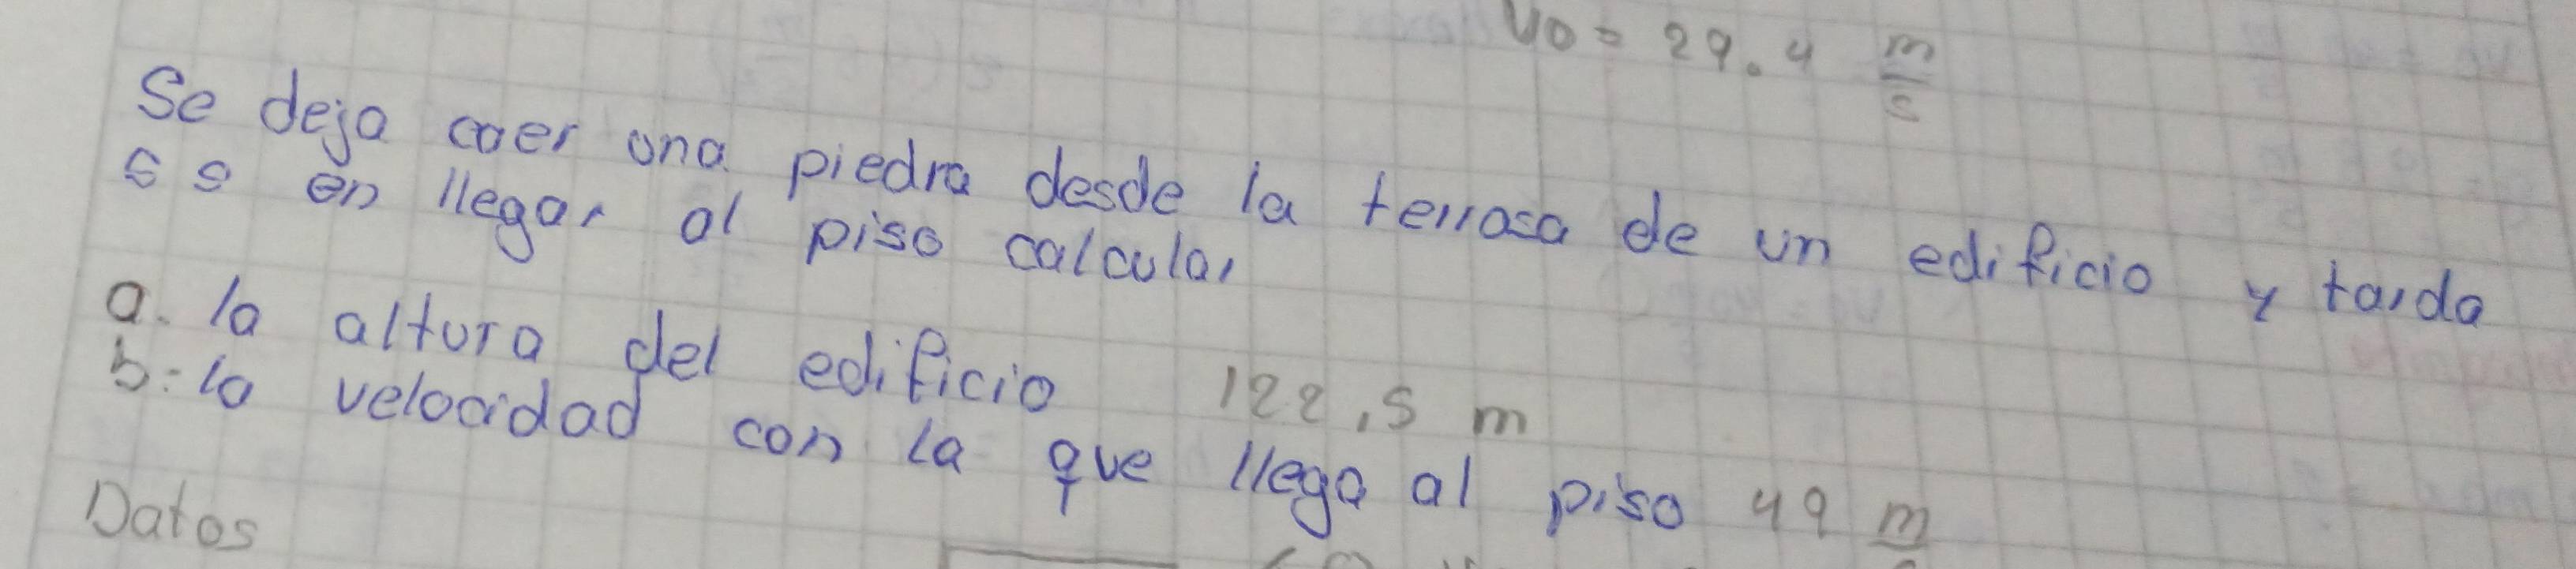 Vo = 29.4 m/s
Se deja caer una piedra desde la terrasa de un edificio y tarda
5 s en llegar al piso calcular
a. la altura del edificio 122,5 m
b. la velocidad con la que llega al piso 49 m
Datos